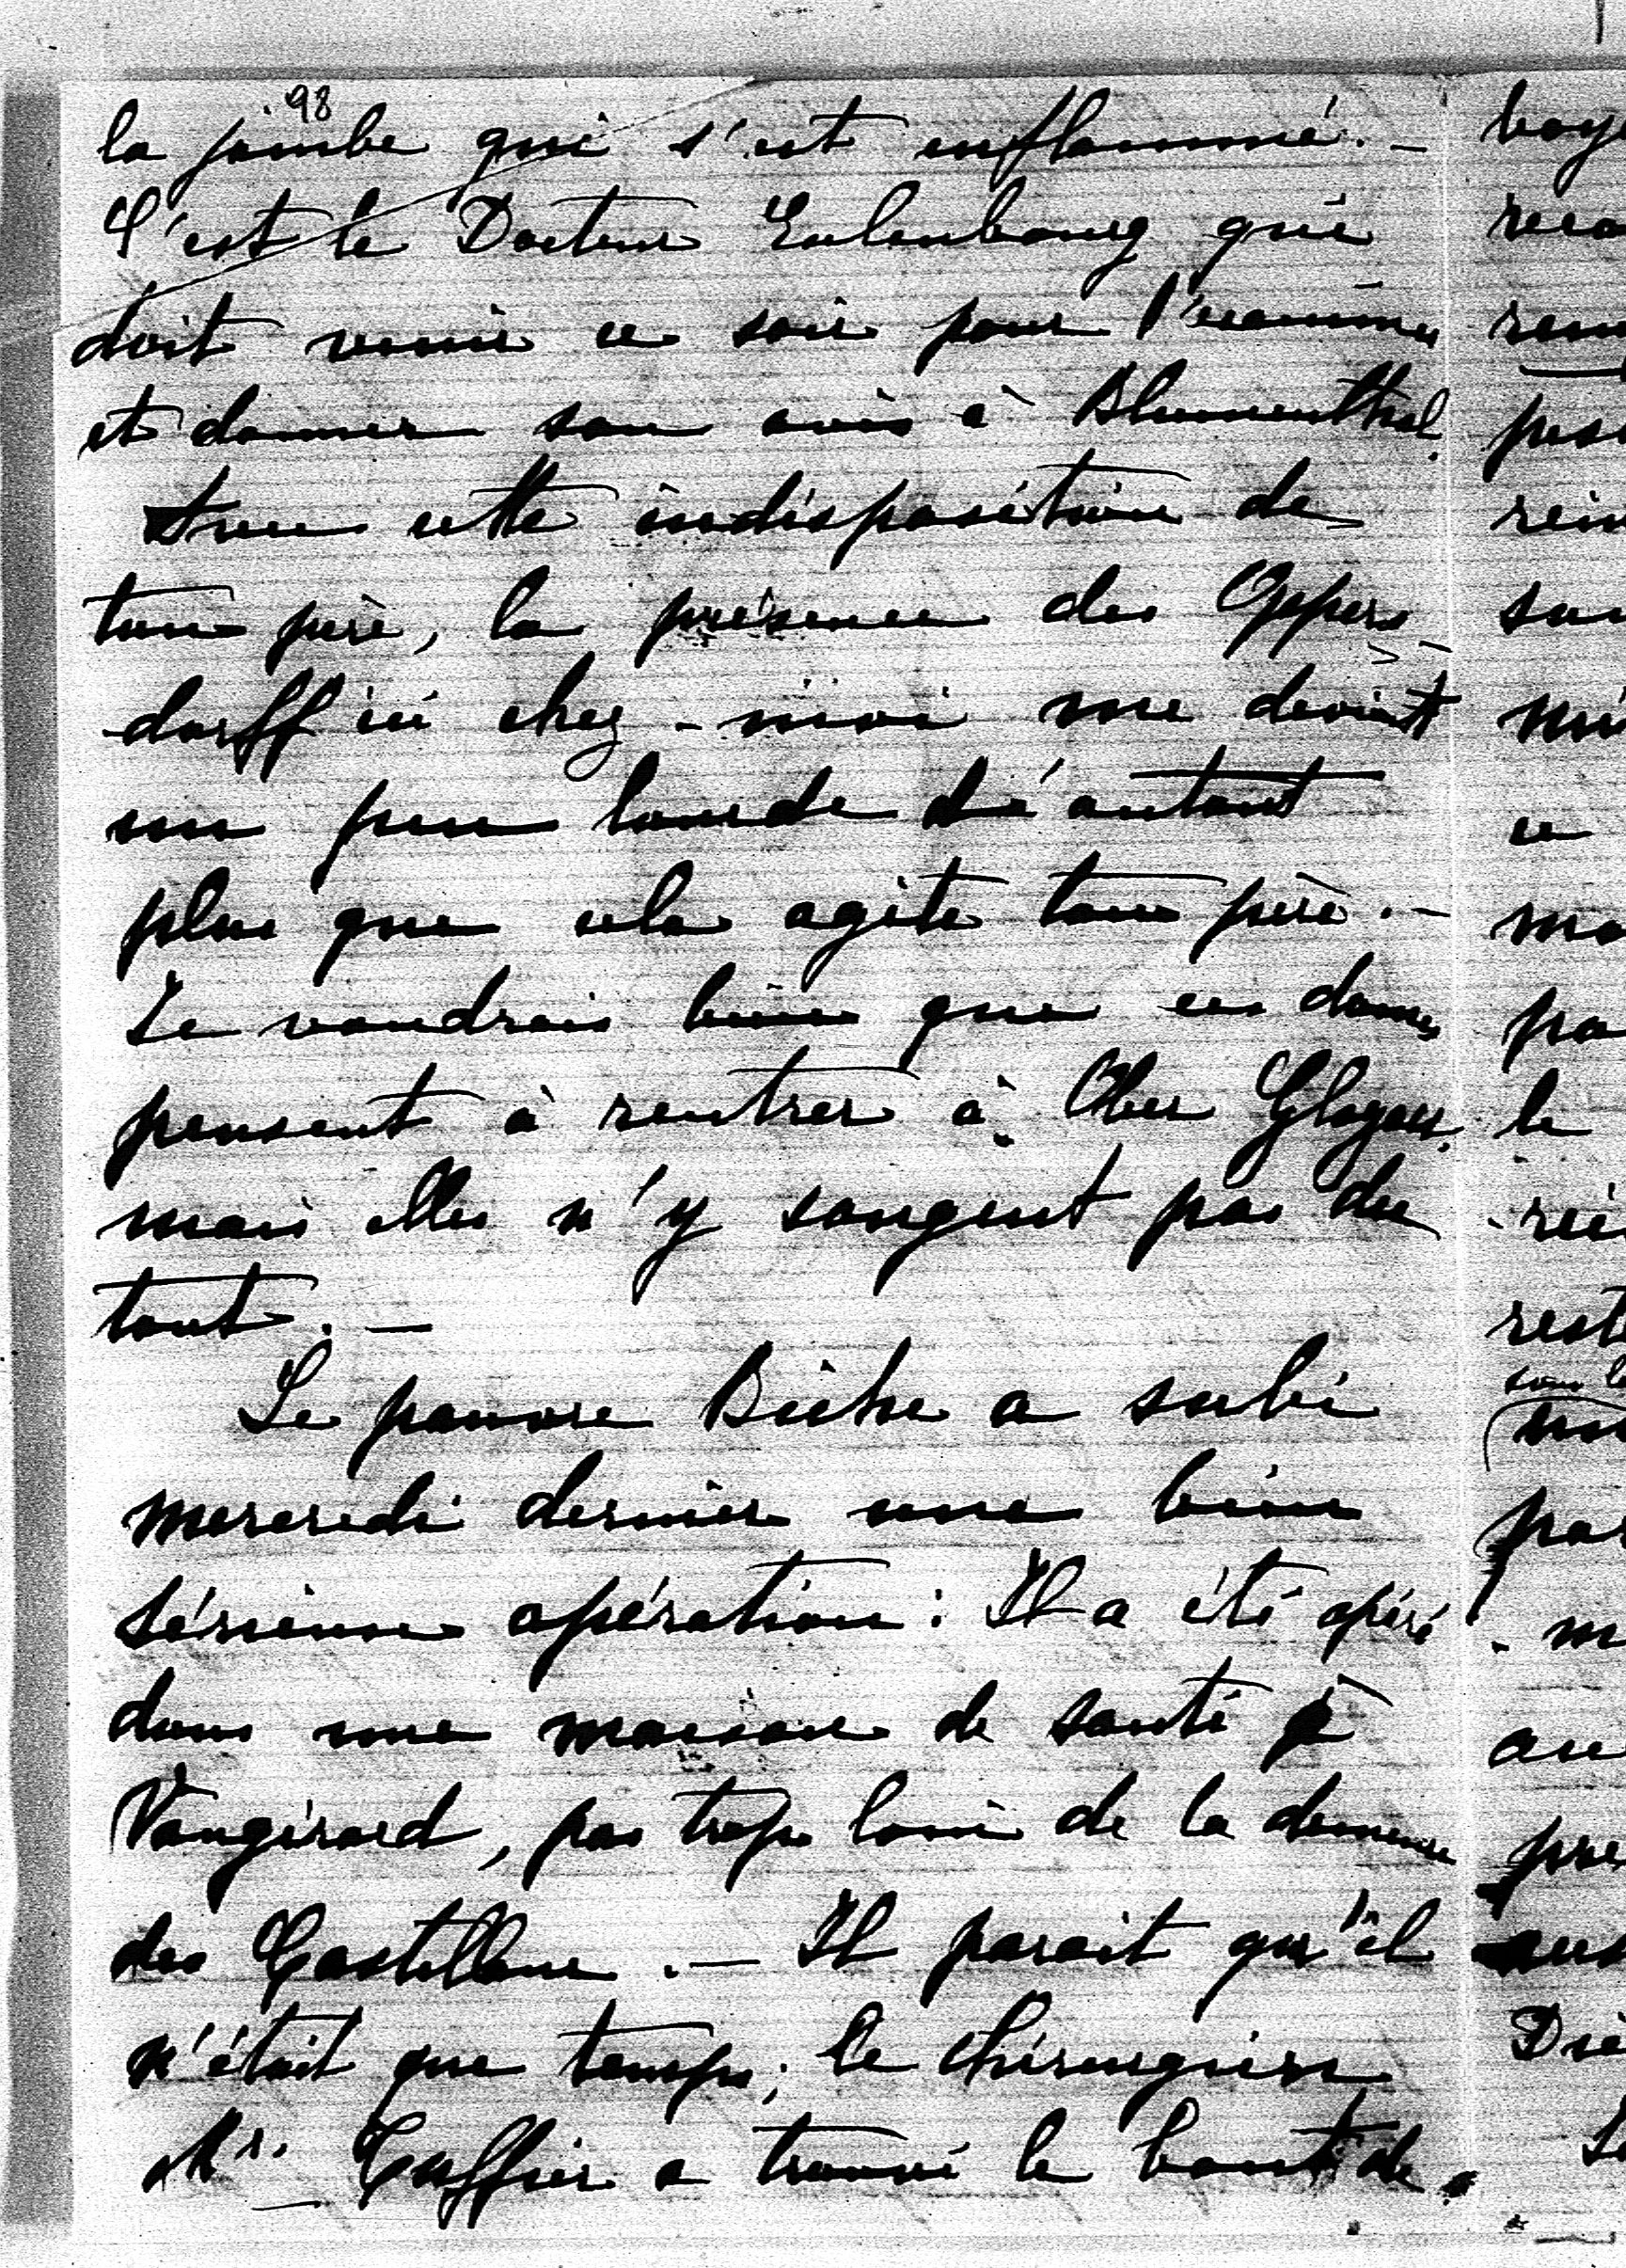 98
la jambe qui s'est enflammé. —
C'est le Docteur Eulenbourg qui
doit venir ce soir pour l'examiner
et donner son avis à Blumenthal.
Avec cette indisposition de
ton père, la présence des Oppers-
dorff ici chez-moi me devient
un peu lourde d'autant
plus que cela agite ton père. —
Je voudrais bien que ces dames
pensent à rentrer à Ober Glogau.
mais elles n'y songent pas du
tout. —
Le pauvre Biche a subi
mercredi dernier une bien
sérieuse opération: Il a été opéré
dans une maison de santé à
Vaugirard, pas trop loin de la demeure
des Castellane. — Il parait qu'il
n'était que temps; le chirurgien
Mr. Tuffier a trouvé le bout de